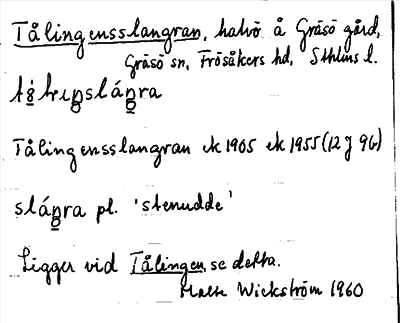 Tålingensslangran, halvö å Gräsö gård,
Gräsö sn, Frösåkers hd, Sthlms l.
Tålingensslangran ek 1905 ek 1955 (12 J 9g)
slán̥ra pl. 'stenudde'
Ligger vid Tålingen, se detta.
Malte Wickström 1960